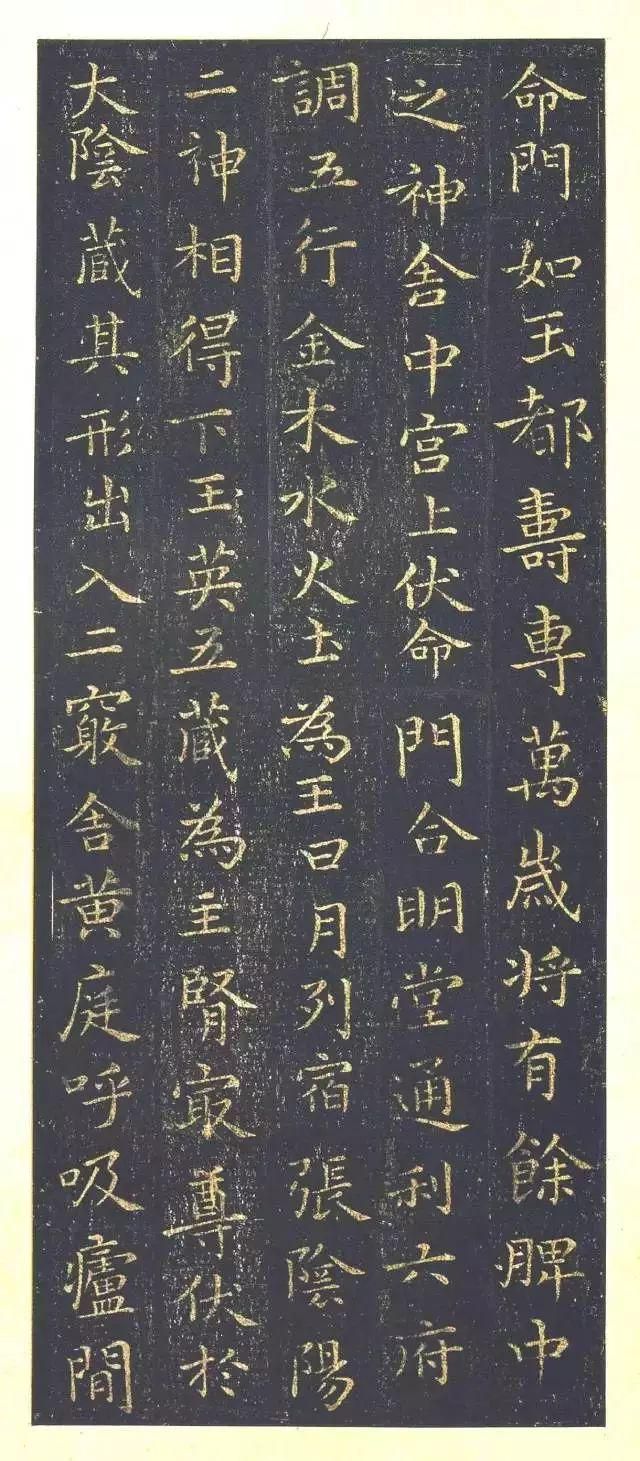 命門如玉都壽專萬歲将有餘脾中
之神舍中宫上伏命門合明堂通利六府
調五行金木水火土為王日月列宿張陰陽
二神相得下玉英五蔵為主腎㝡尊伏於
大陰蔵其形出入二竅舍黄庭呼吸廬間